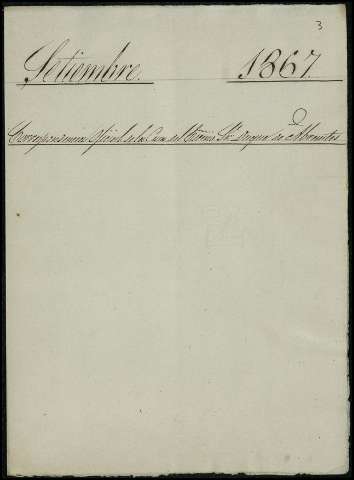 3
Setiembre. 1867.
Correspondencia Oficial de la Casa del Excmo Sr. Duque de Abrantes